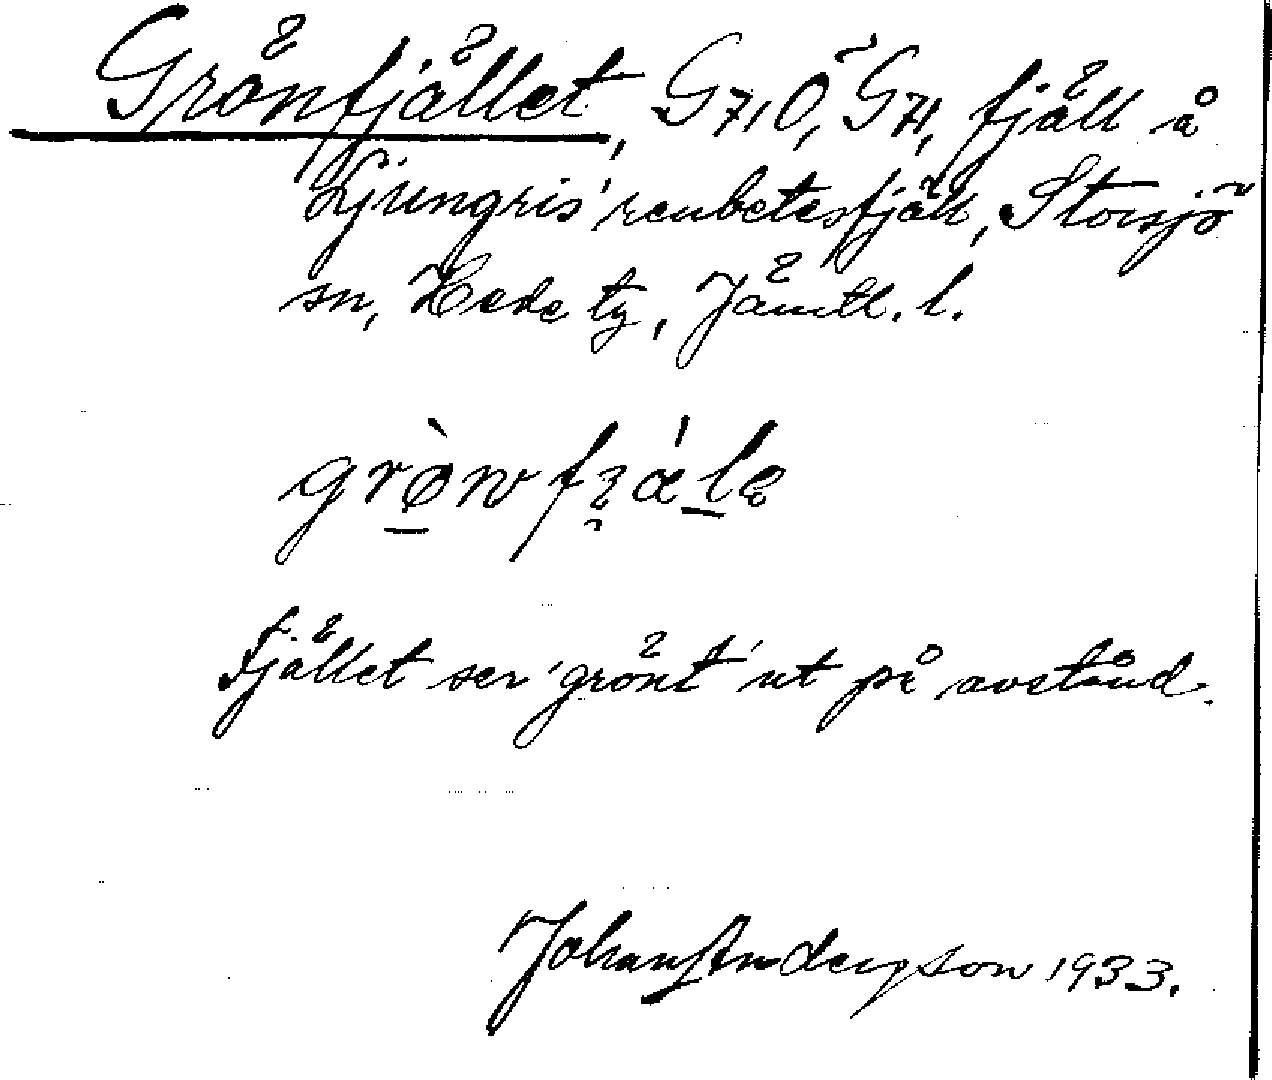 Grönfjället, G71Ö, G71, fjäll å
Ljungris renbetesfjäll, Storsjö
sn, Hede tg, Jämtl. l.
Fjället ser 'grönt' ut på avstånd.
Johan Andersson 1933.